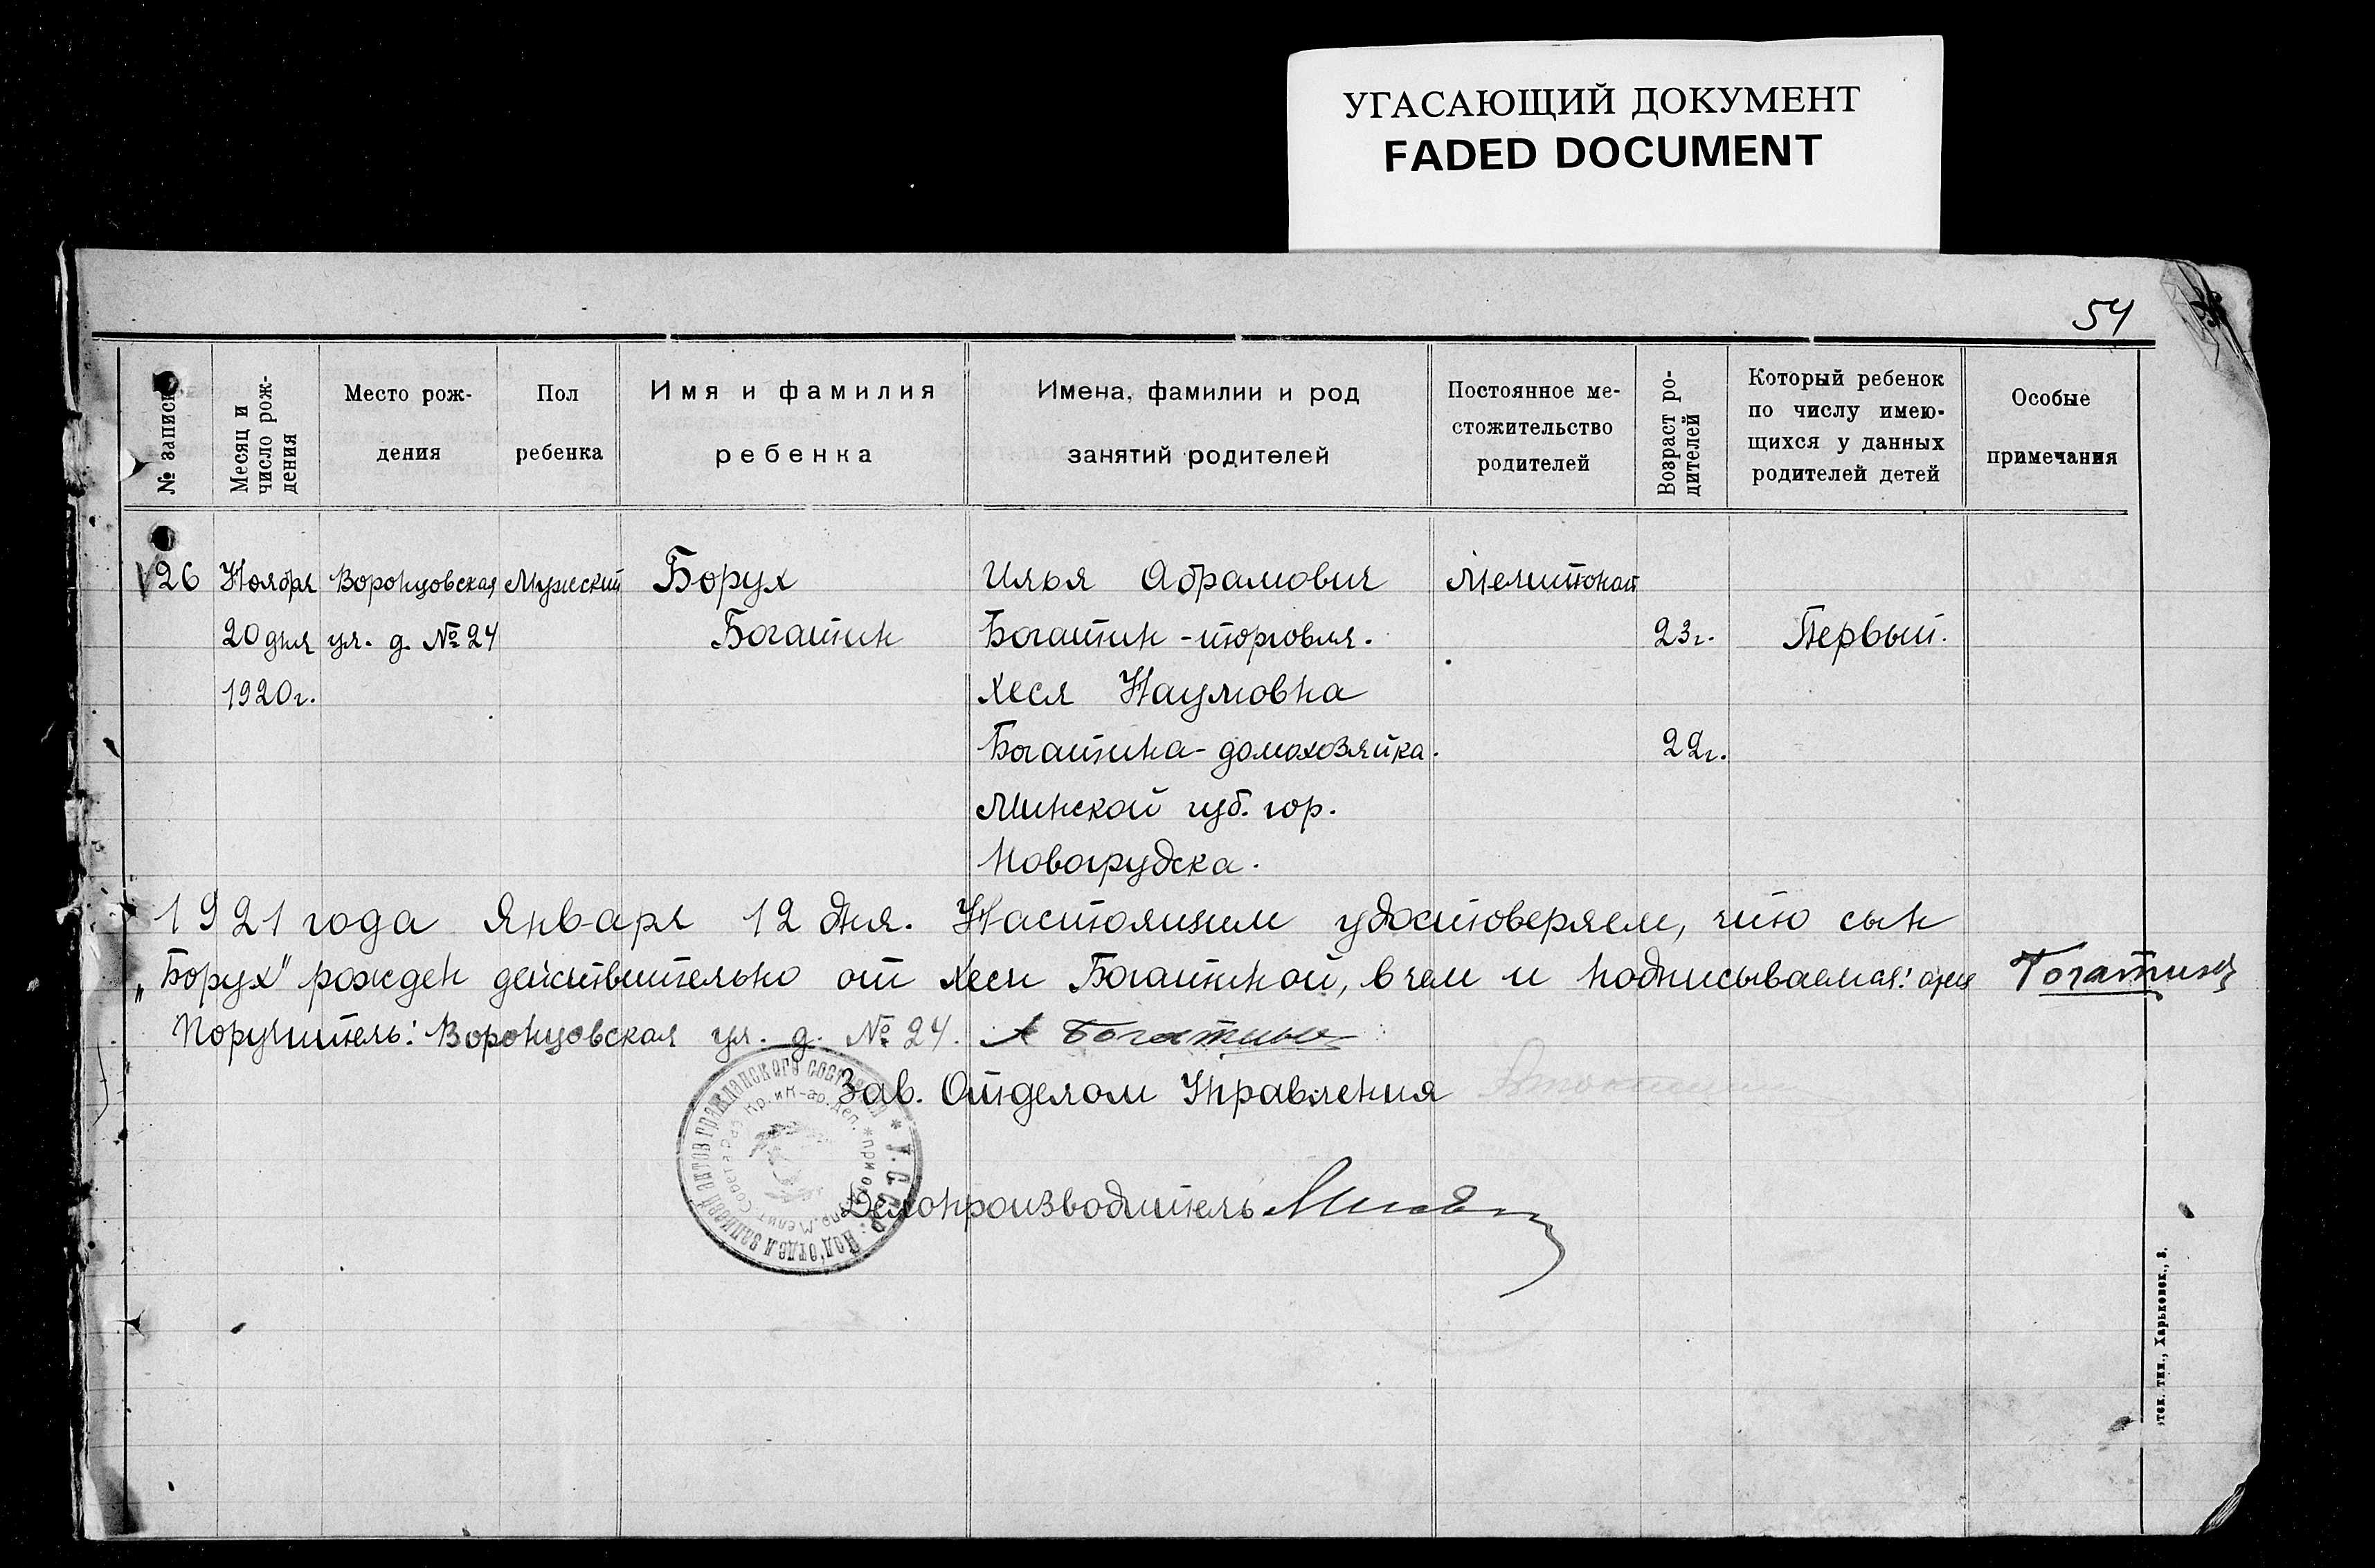 УГАСАЮЩИЙ ДОКУМЕНТ
FADED DOCUMENT
54
№ записи
Месяц и
число рож-
дения
Место рож-
дения
Пол
ребенка
Имя и фамилия
ребенка
Имена, фамилии и род
занятий родителей
Постоянное ме-
стожительство
родителей
Возраст ро-
дителей
Который ребенок
по числу имею-
щихся у данных
родителей детей
Особые
примечания
26 Ноября Воронцовская Мужеский Борух Илья Абрамович Мелитополь
20 дня ул. д. № 24 Богатин Богатин - торговля. 23 г. Первый.
1920 г. Хеся Наумовна
Богатина - домохозяйка. 22 г.
Минской губ. гор.
Новогрудска.
1921 года Января 12 дня. Настоящим удостоверяем, что сын
„Борух" рожден действительно от Хеси Богатиной, в чем и подписываемся: отец Богатин
Поручитель: Воронцовская ул. д. № 24. А Богатин
Зав. Отделом Управления
Делопроизводитель
У.С.С.Р. Под'отдел записей актов гражданского состояния
тек. тип., Харьковск., 8.